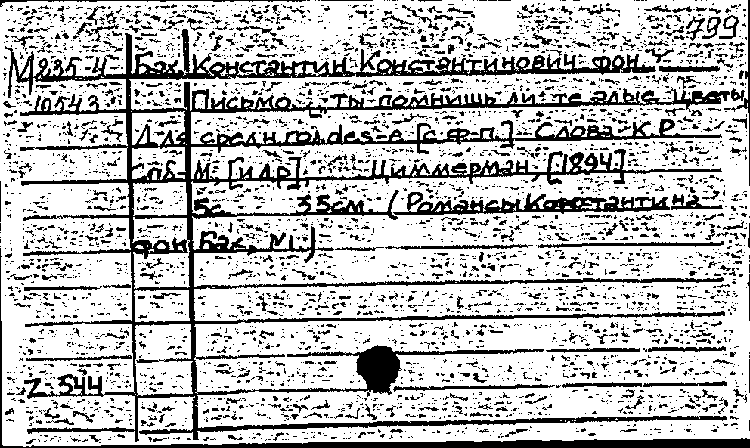 799
М 235-4 Бах, Константин Константинович фон
10543 Письмо. "Ты помнишь ли те алые цветы,
Для средн. гол. des-e [с ф-п.] Слова К.Р.
Спб-М, [и др], Циммерман, [1894]
5с. 35см. (Романсы Константина
фон Бах, №1.)
Z-544